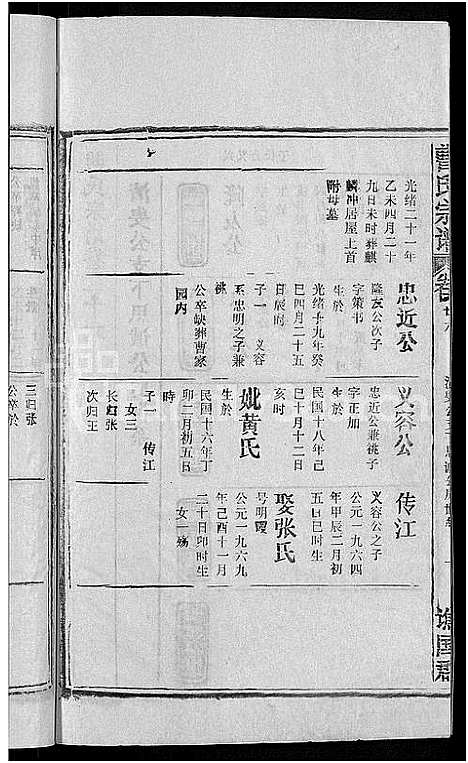 曹氏宗谱
谯国郡
光绪二十一年
乙未四月二十
九日未时葬麒
麟冲居屋上首
附母墓
忠近公
隆友公次子
字策书
生於
光绪十九年癸
巳四月二十五
日辰时
子一 义容
系忠明之子兼
祧
公卒缺葬曹家
园内
义容公
忠近公兼祧子
字正加
生於
民国十八年己
巳十月十二日
亥时
妣黄氏
生於
民国十六年丁
卯二月初五日
時
子一 传江
女三
长 张
次归王
传江
义容公之子
公元一九六四
年甲辰二月初
五日巳时生
娶张氏
号明霞
公元一九六九
年己酉十一月
二十日卯时生
女一 殇
三归张
公卒於